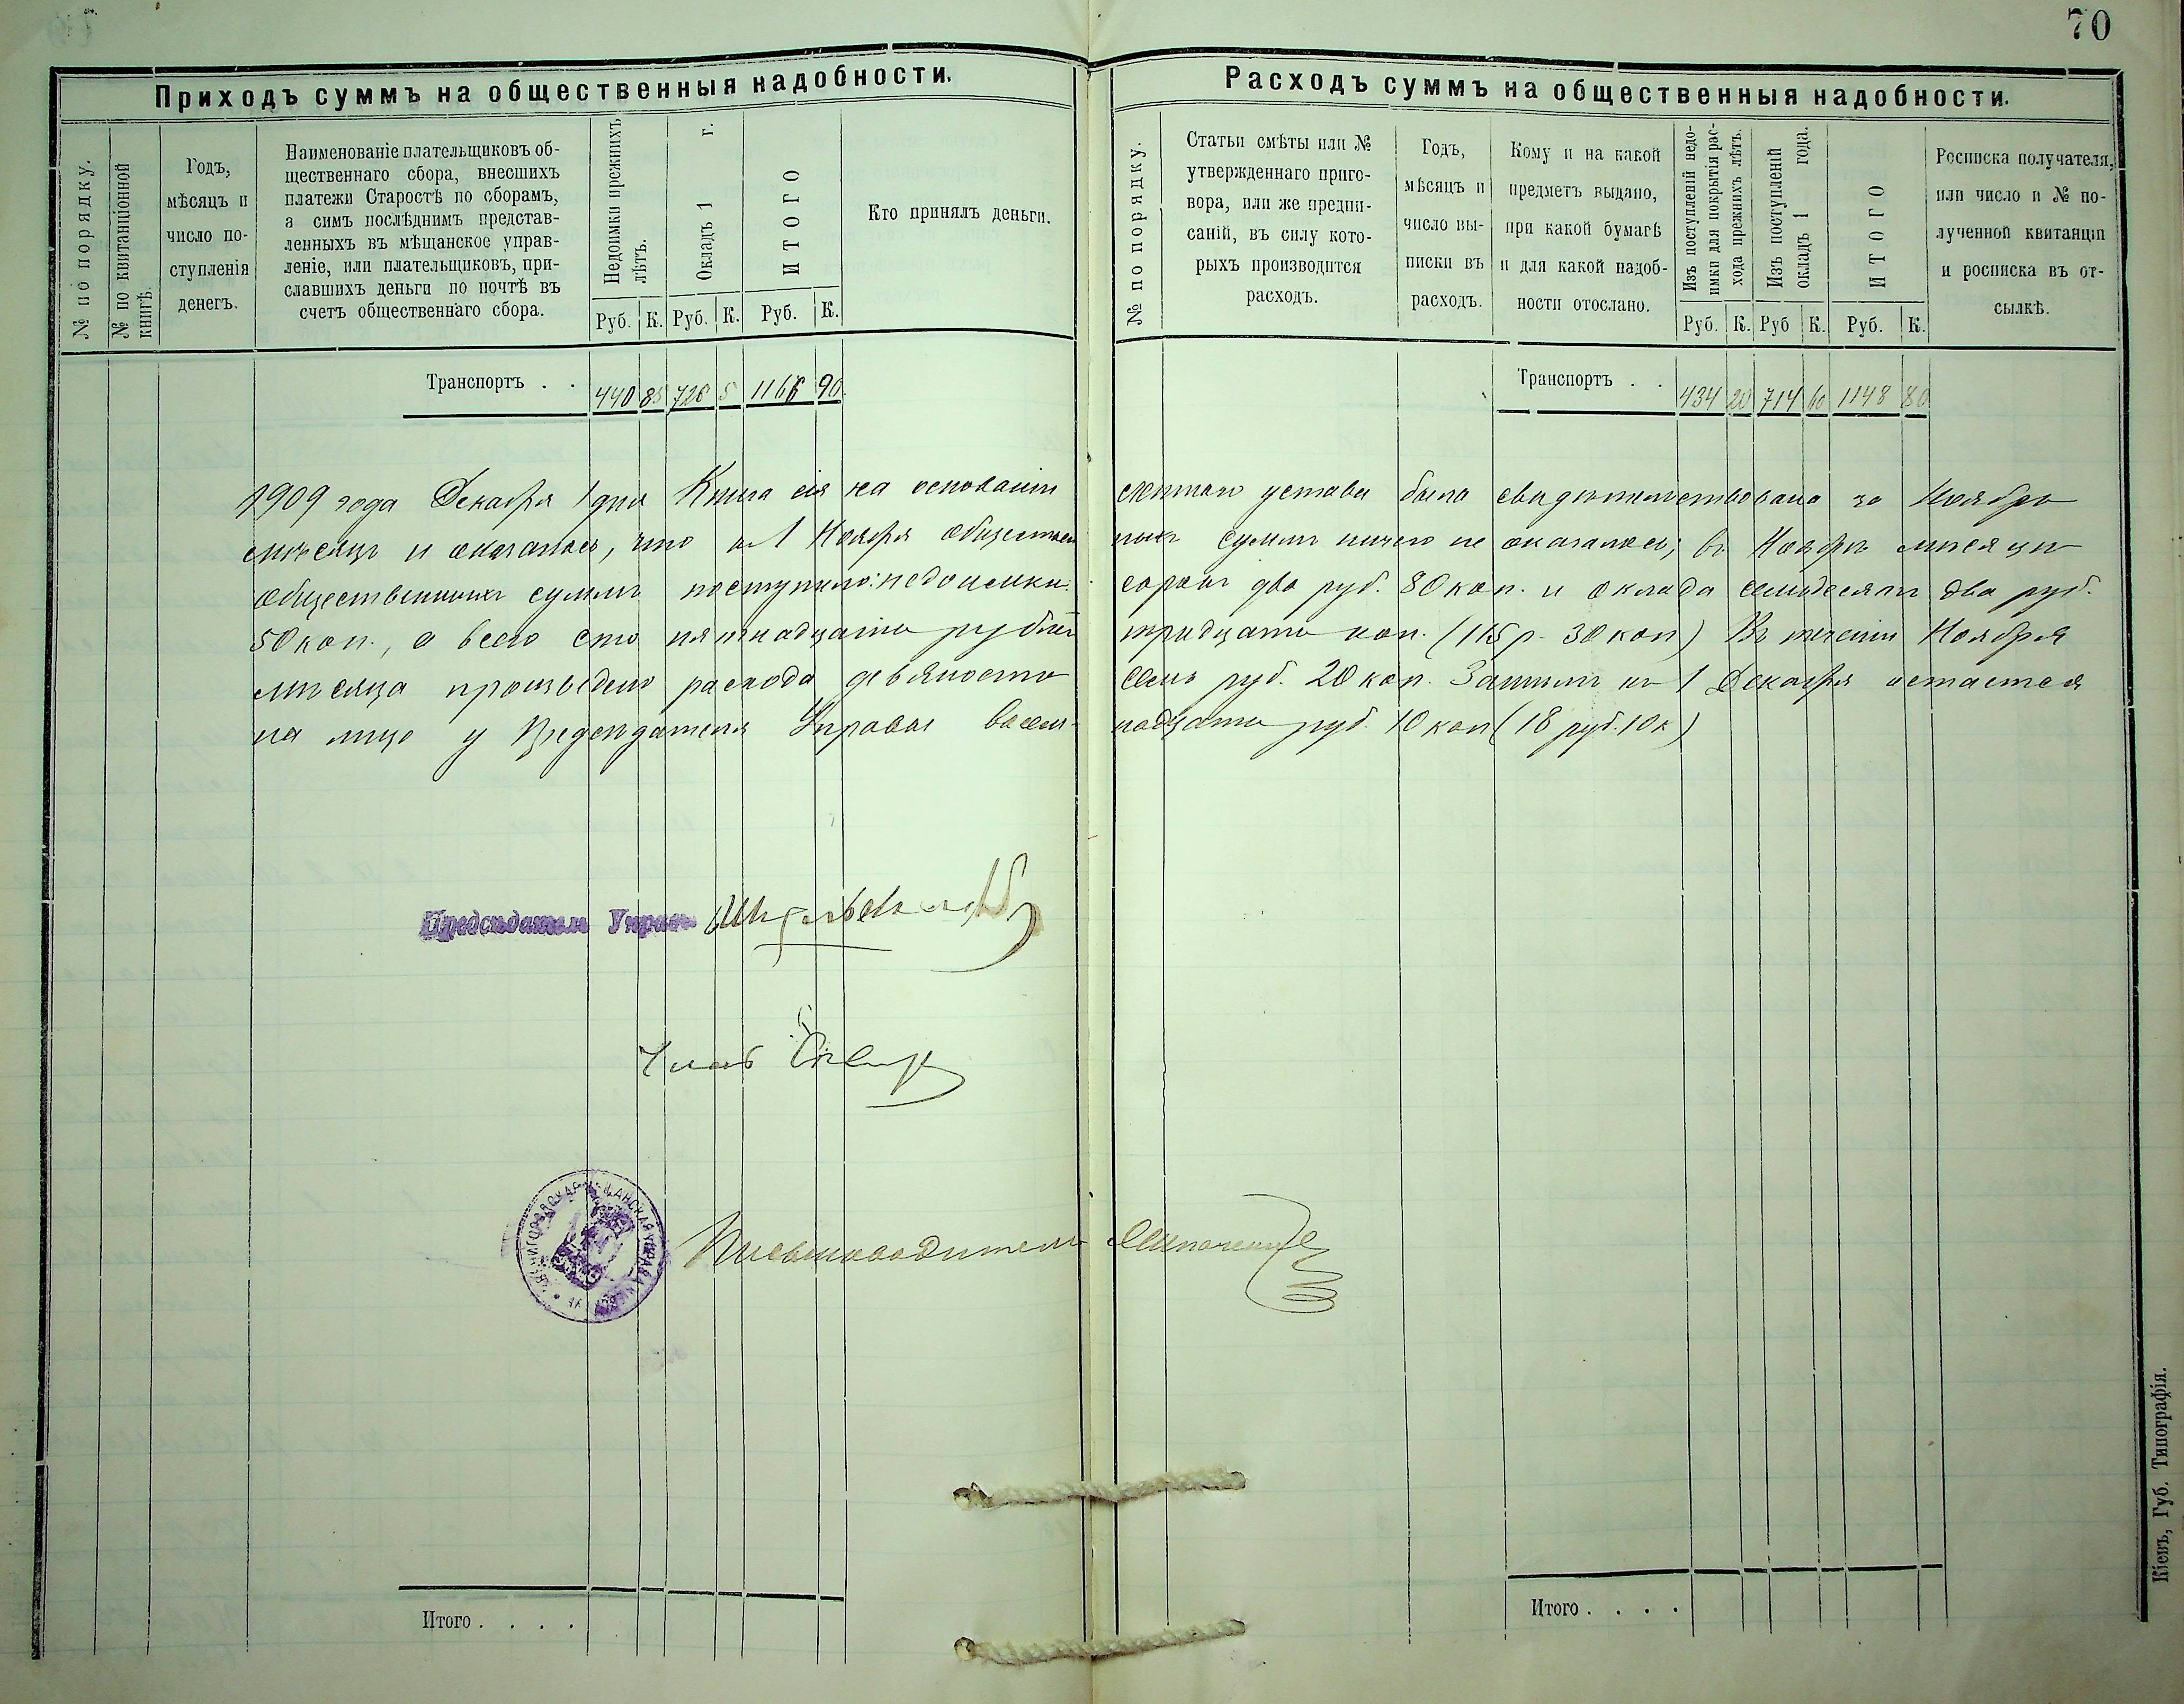 70
Приходъ суммъ на общественныя надобности.
№ по порядку.
№ по квитанціонной
книгѣ.
Годъ,
мѣсяцъ и
число по-
ступленія
денегъ.
Наименованіе плательщиковъ об-
щественнаго сбора, внесшихъ
платежи Старостѣ по сборамъ,
а симъ послѣднимъ представ-
ленныхъ въ мѣщанское управ-
леніе, или плательщиковъ, при-
славшихъ деньги по почтѣ въ
счетъ общественнаго сбора.
Недоимки прежнихъ
лѣтъ.
Окладъ 1 г.
ИТОГО
Руб. К. Руб. К. Руб. К.
Кто принялъ деньги.
Транспортъ . . 440 85 726 5 1166 90
Расходъ суммъ на общественныя надобности.
№ по порядку.
Статьи смѣты или №
утвержденнаго приго-
вора, или же предпи-
саній, въ силу кото-
рыхъ производится
расходъ.
Годъ,
мѣсяцъ и
число вы-
писки въ
расходъ.
Кому и на какой
предметъ выдано,
при какой бумагѣ
и для какой надоб-
ности отослано.
Изъ поступленій недо-
имки для покрытія рас-
хода прежнихъ лѣтъ.
Изъ поступленій
окладъ 1 года.
ИТОГО
Руб. К. Руб К. Руб. К.
Росписка получателя,
или число и № по-
лученной квитанціи
и росписка въ от-
сылкѣ.
Транспортъ . . 434 20 714 60 1148 80
1909 года Декабря 1 дня Книга сія на основаніи счетнаго устава была свидѣтельствована за Ноябрь
мѣсяцъ и оказалось, что къ 1 Ноября обществен ныхъ суммъ ничего не оказалось; въ Ноябрѣ мѣсяцѣ
общественныхъ суммъ поступило: недоимки сорокъ два руб. 80 коп. и оклада семьдесятъ два руб.
50 коп., а всего сто пятнадцать рублей тридцать коп. (115 р. 30 коп) Въ теченіи Ноября
мѣсяца произведено расхода девяносто семь руб. 20 коп. Затѣмъ къ 1 Декабря остается
на лицо у Предсѣдателя Управы восем- надцать руб. 10 коп (18 руб. 10 к)
Предсѣдатель Управы
Членъ
Письмоводитель
МѢЩАНСКАЯ УПРАВА
Итого . . . .
Итого . . . .
Кіевъ, Губ. Типографія.